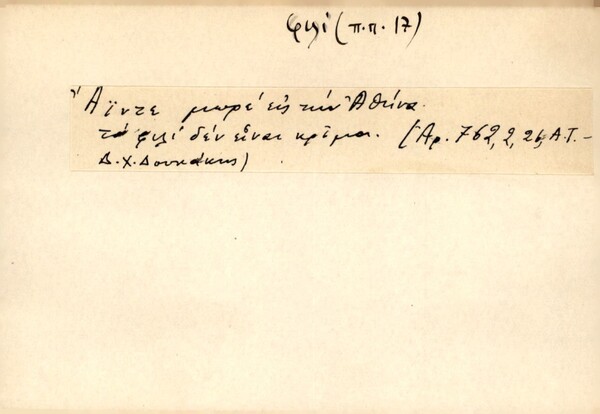 φιλί (π.π. 17)
Ἄϊντε μωρέ εἰς τήν Ἀθήνα
τό φιλί δέν εἶναι κρῖμα. (Ἀρ. 762, 2, 26, Α.Τ.-
Δ.Χ. Δουκάκης)